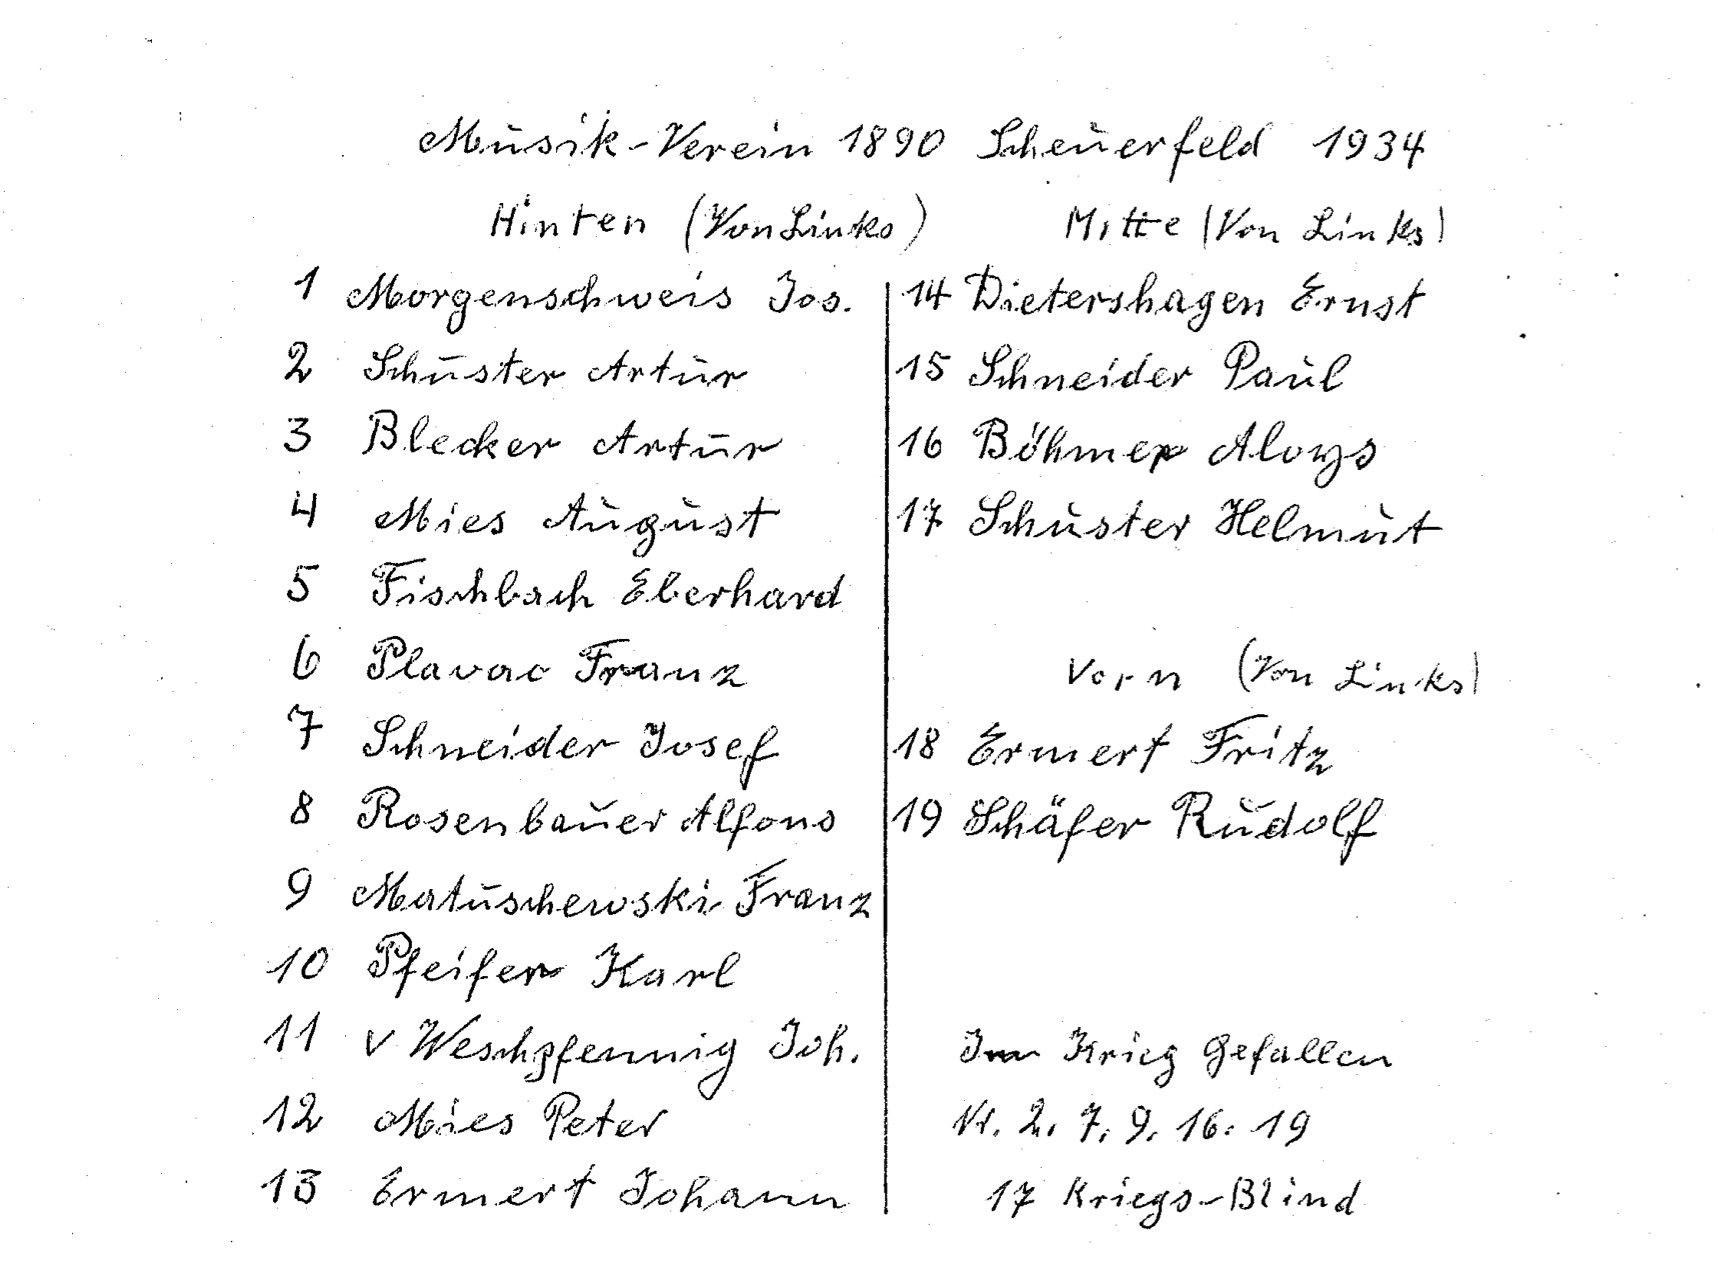 Musik-Verein 1890 Scheuerfeld 1934
Hinten (Von Links)
1 Morgenschweis Jos.
2 Schuster Artur
3 Blecker Artur
4 Mies August
5 Fischbach Eberhard
6 Plavac Franz
7 Schneider Josef
8 Rosenbauer Alfons
9 Matuschewski Franz
10 Pfeifer Karl
11 v Weschpfennig Joh.
12 Mies Peter
13 Ermert Johann
Mitte (Von Links)
14 Dietershagen Ernst
15 Schneider Paul
16 Böhmer Aloys
17 Schuster Helmut
Vorn (Von Links)
18 Ermert Fritz
19 Schäfer Rudolf
Im Krieg Gefallen
Nr. 2. 7. 9. 16. 19
17 Kriegs-Blind